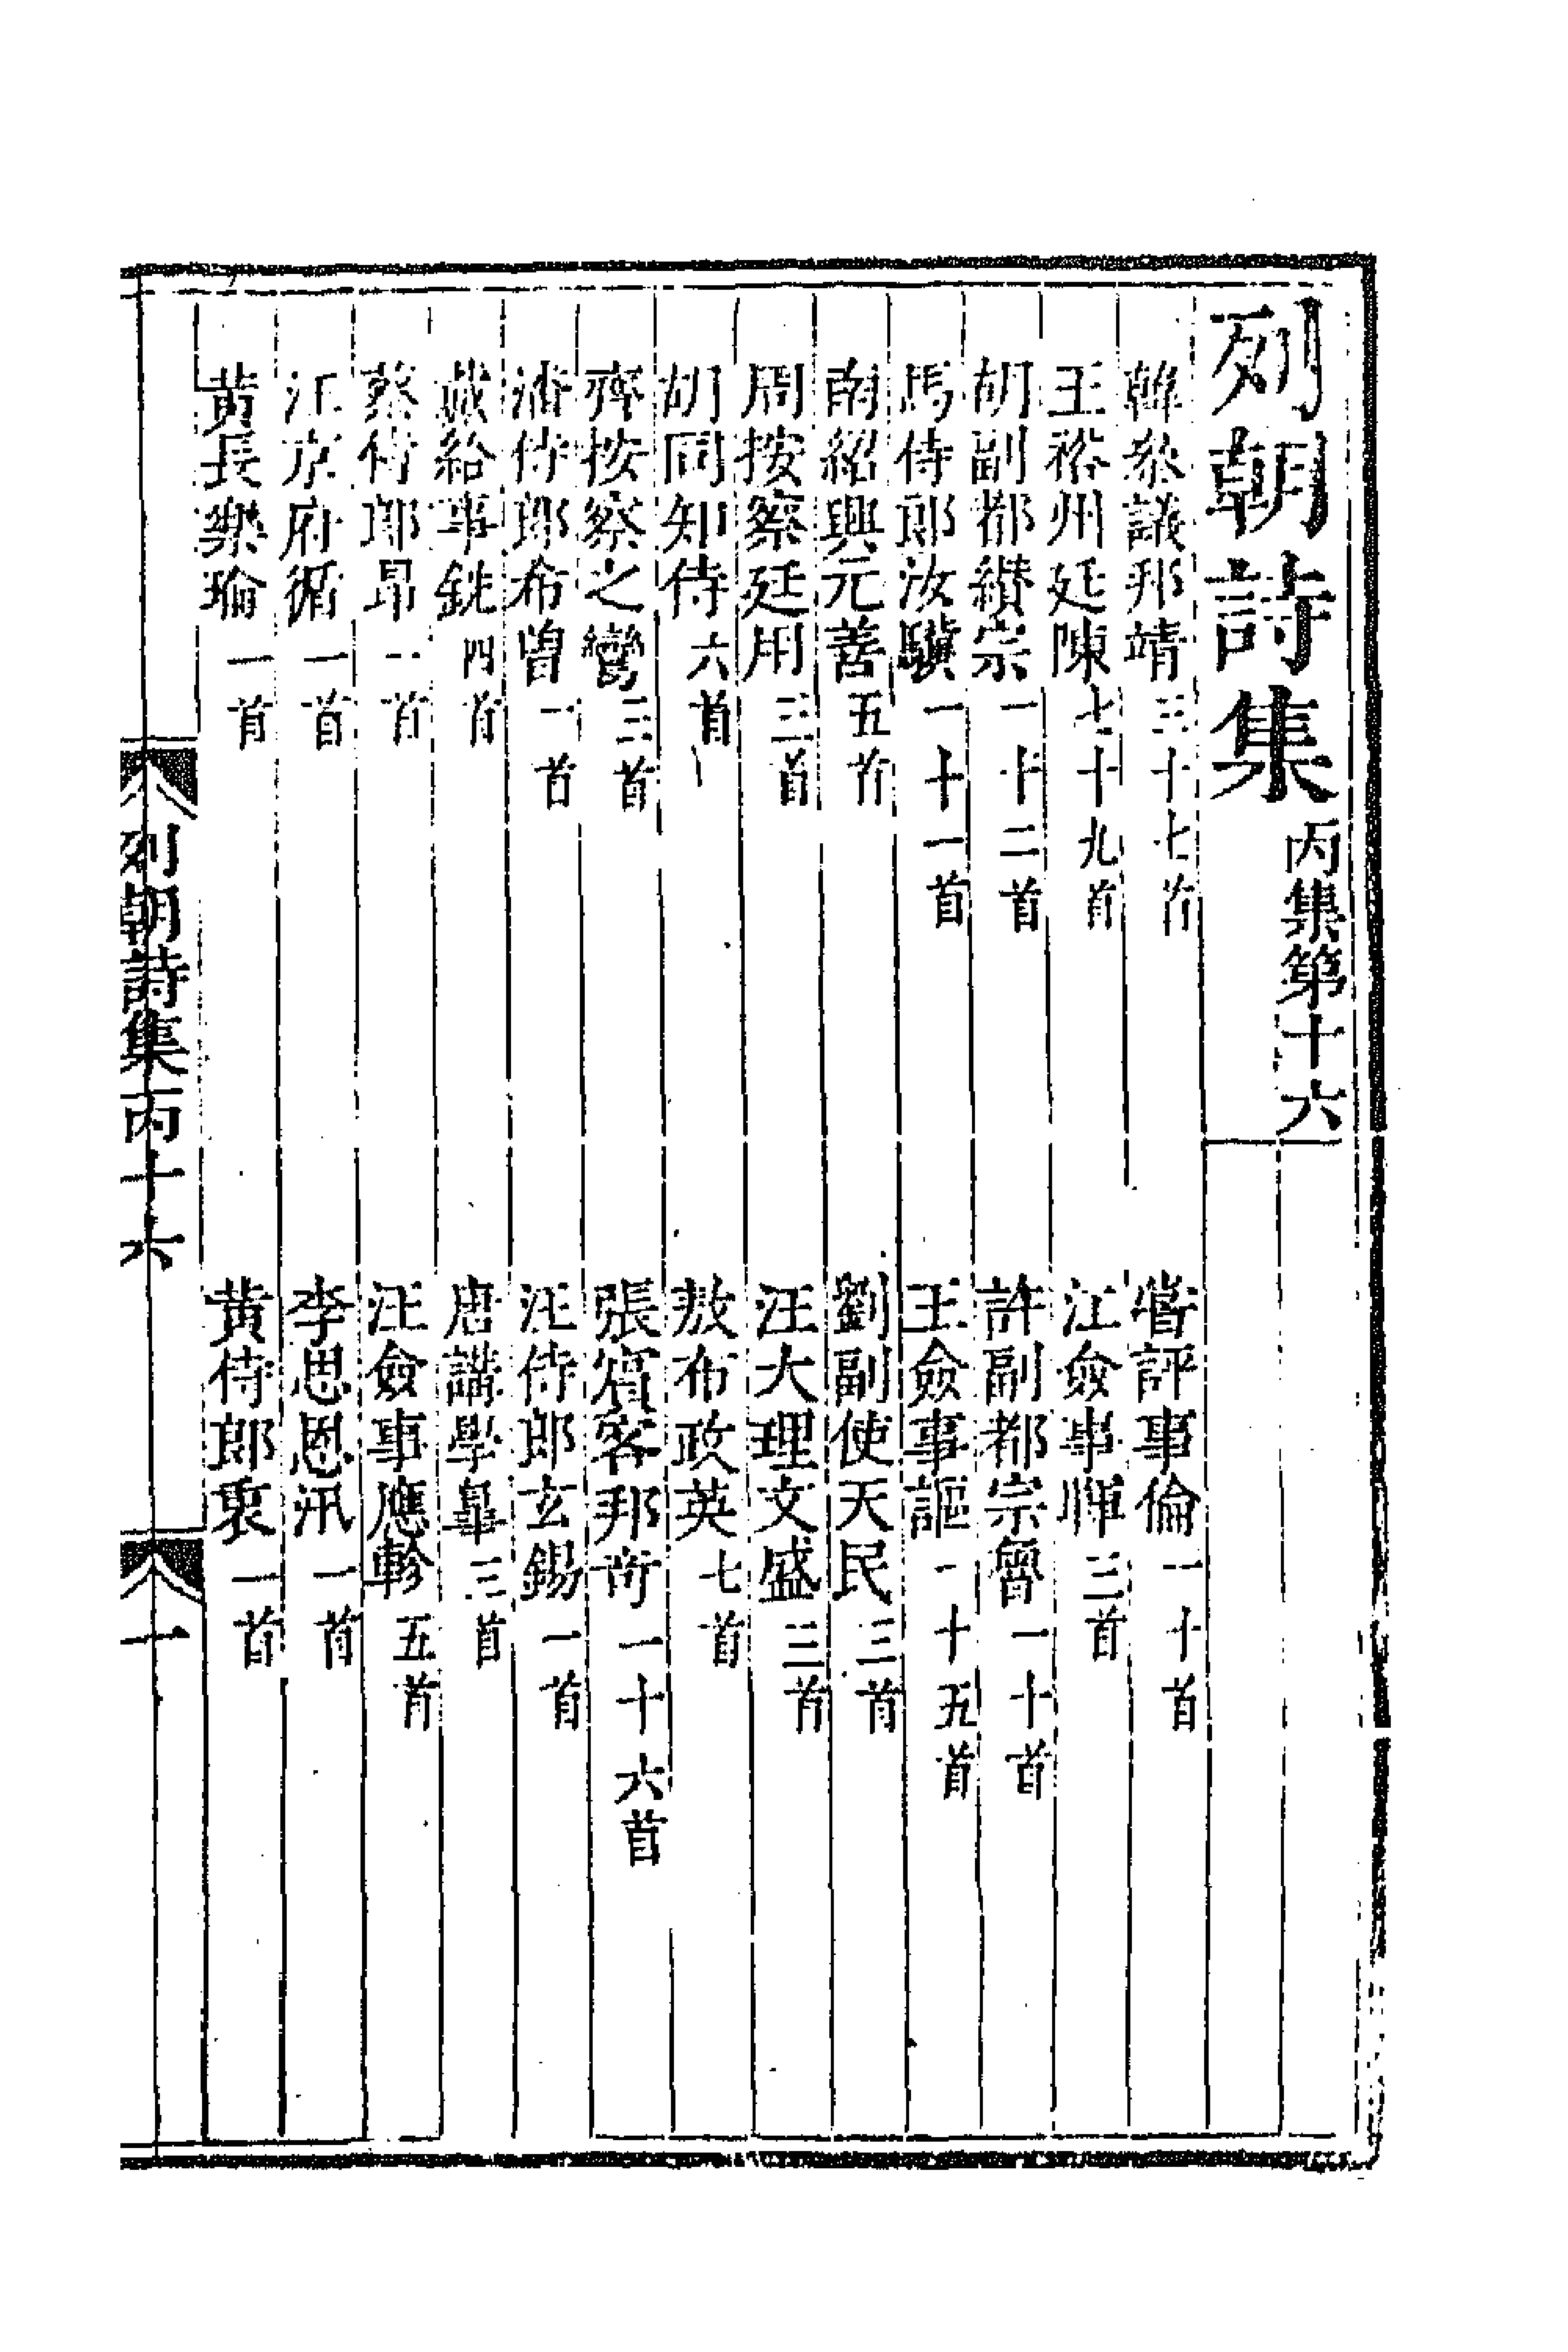 列朝詩集丙集第十六
韓參議邦靖三十七首　嘗評事倫一十首
王裕州廷陳七十九首　江僉事暉三首
胡副都纘宗一十二首　許副都宗魯一十首
馬侍郎汝驥一十一首　王僉事謳一十五首
南紹興元善五首　劉副使天民三首
周按察廷用三首　汪大理文盛三首
胡同知侍六首　敖布政英七首
齊按察之鸞三首　張賓客邦奇一十六首
潘侍郎希曾一首　汪侍郎玄錫一首
戴給事銑四首　唐講學皐三首
蔡侍郎昂一首　汪僉事應軫五首
汪京府循一首　李思恩汛一首
黃長樂瑜一首　黃侍郎衷一首
列朝詩集丙十六　一